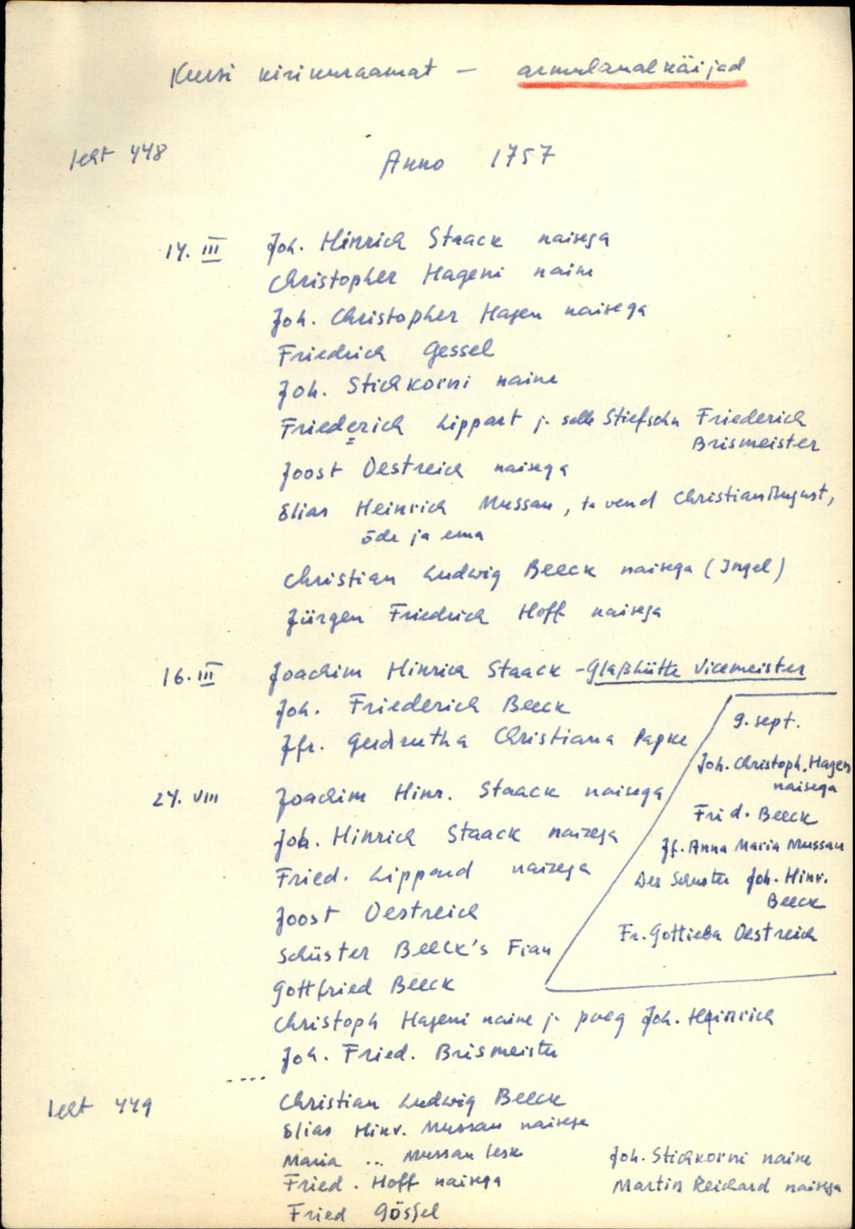 Kursi kirikuraamat — armulaualkäijad
leht 448
Anno 1757
14. III Joh. Hinrich Staack naisega
Christopher Hageni naine
Joh. Christopher Hagen naisega
Friedrich Gessel
Joh. Stichkorni naine
Friederich Lippart j. selle Stiefsohn Friederich
Brismeister
Joost Oestreich naisega
Elias Heinrich Mussau, ta vend Christian August,
õde ja ema
Christian Ludwig Beeck naisega (Ingel)
Jürgen Friedrich Hoff naisega
16. III Joachim Hinrich Staack - Glaßhütte Vicemeister
Joh. Friederich Beeck
Jfr. Gerdrutha Christiana Papke
24. VIII Joachim Hinr. Staack naisega
Joh. Hinrich Staack naisega
Fried. Lippard naisega
Joost Oestreich
Schüster Beeck's Frau
Gottfried Beeck
Christoph Hageni naine j. poeg Joh. Heinrich
Joh. Fried. Brismeister
9. sept.
Joh. Christoph. Hagen
naisega
Fried. Beeck
Jf. Anna Maria Mussau
Der Schuster Joh. Hinr.
Beeck
Fr. Gottlieba Oestreich
....
leht 449
Christian Ludwig Beeck
Elias Hinr. Mussau naisega
Maria .. Mussau lesk
Fried. Hoff naisega
Fried Gössel
Joh. Stichkorni naine
Martin Reichard naisega